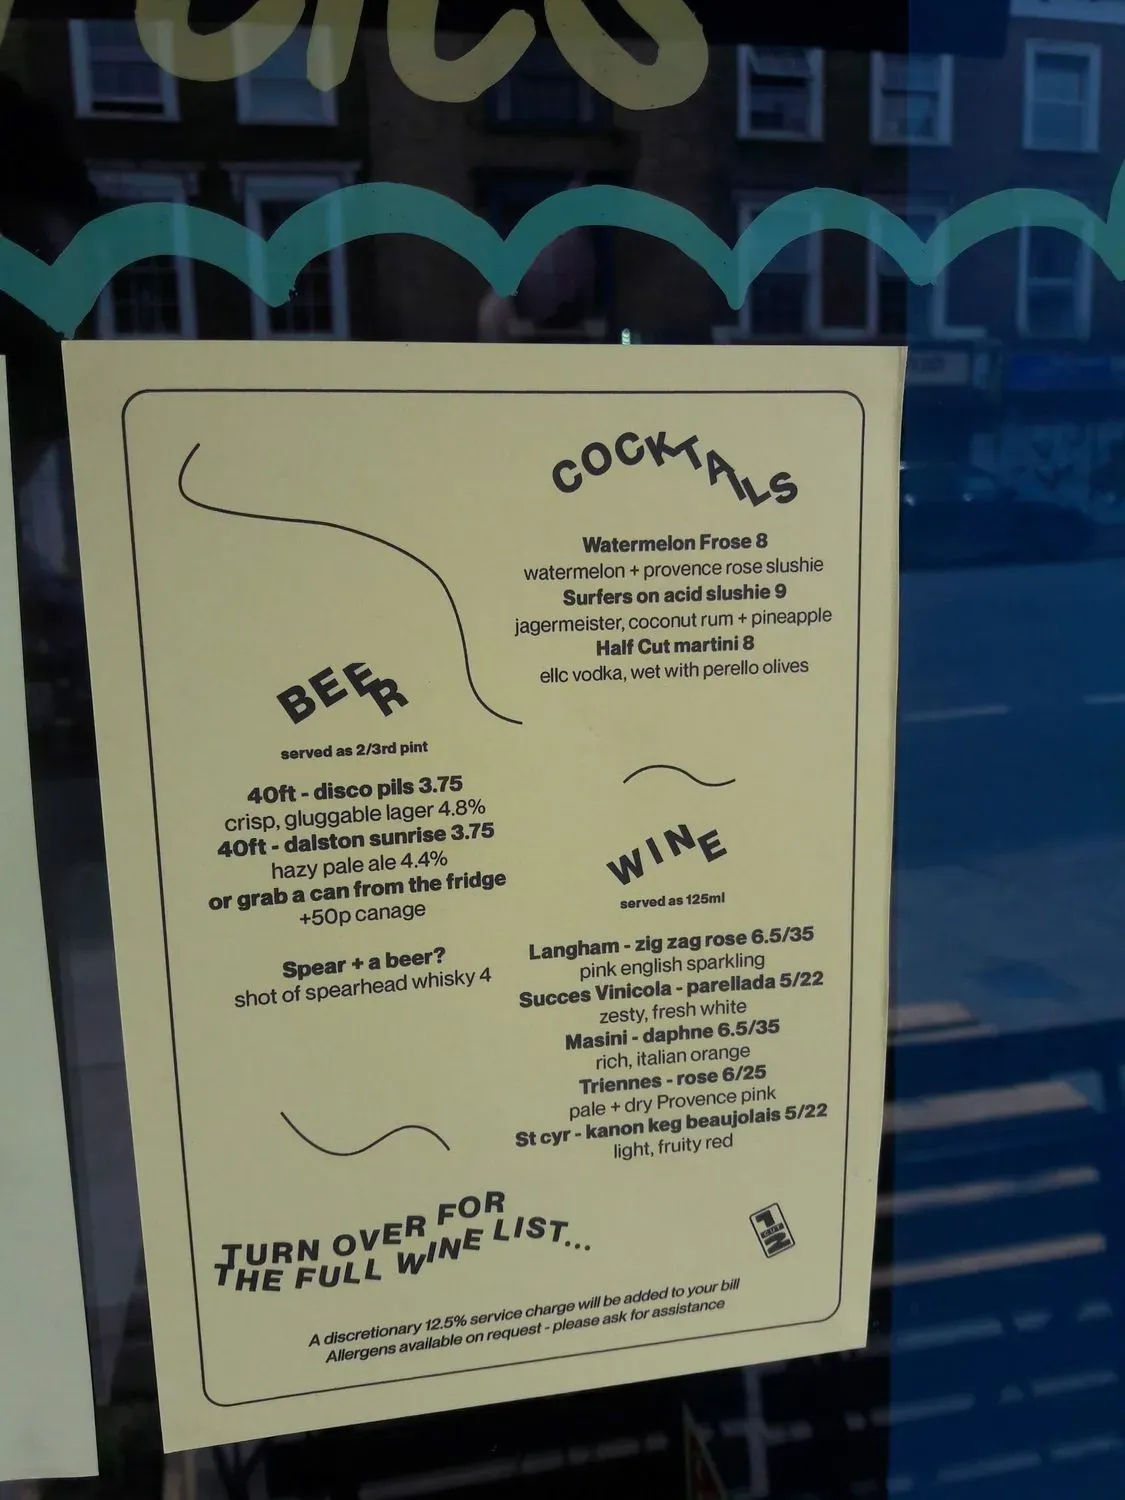 COCKTAILS
Watermelon Frose 8
watermelon + provence rose slushie
Surfers on acid slushie 9
jagermeister, coconut rum + pineapple
Half Cut martini 8
ellc vodka, wet with perello olives
BEER
served as 2/3rd pint
40ft - disco pils 3.75
crisp, gluggable lager 4.8%
40ft - dalston sunrise 3.75
hazy pale ale 4.4%
or grab a can from the fridge
+50p canage
Spear + a beer?
shot of spearhead whisky 4
WINE
served as 125ml
Langham - zig zag rose 6.5/35
pink english sparkling
Succes Vinicola - parellada 5/22
zesty, fresh white
Masini - daphne 6.5/35
rich, italian orange
Triennes - rose 6/25
pale + dry Provence pink
St cyr - kanon keg beaujolais 5/22
light, fruity red
TURN OVER FOR
THE FULL WINE LIST...
1
CUT
2
A discretionary 12.5% service charge will be added to your bill
Allergens available on request - please ask for assistance